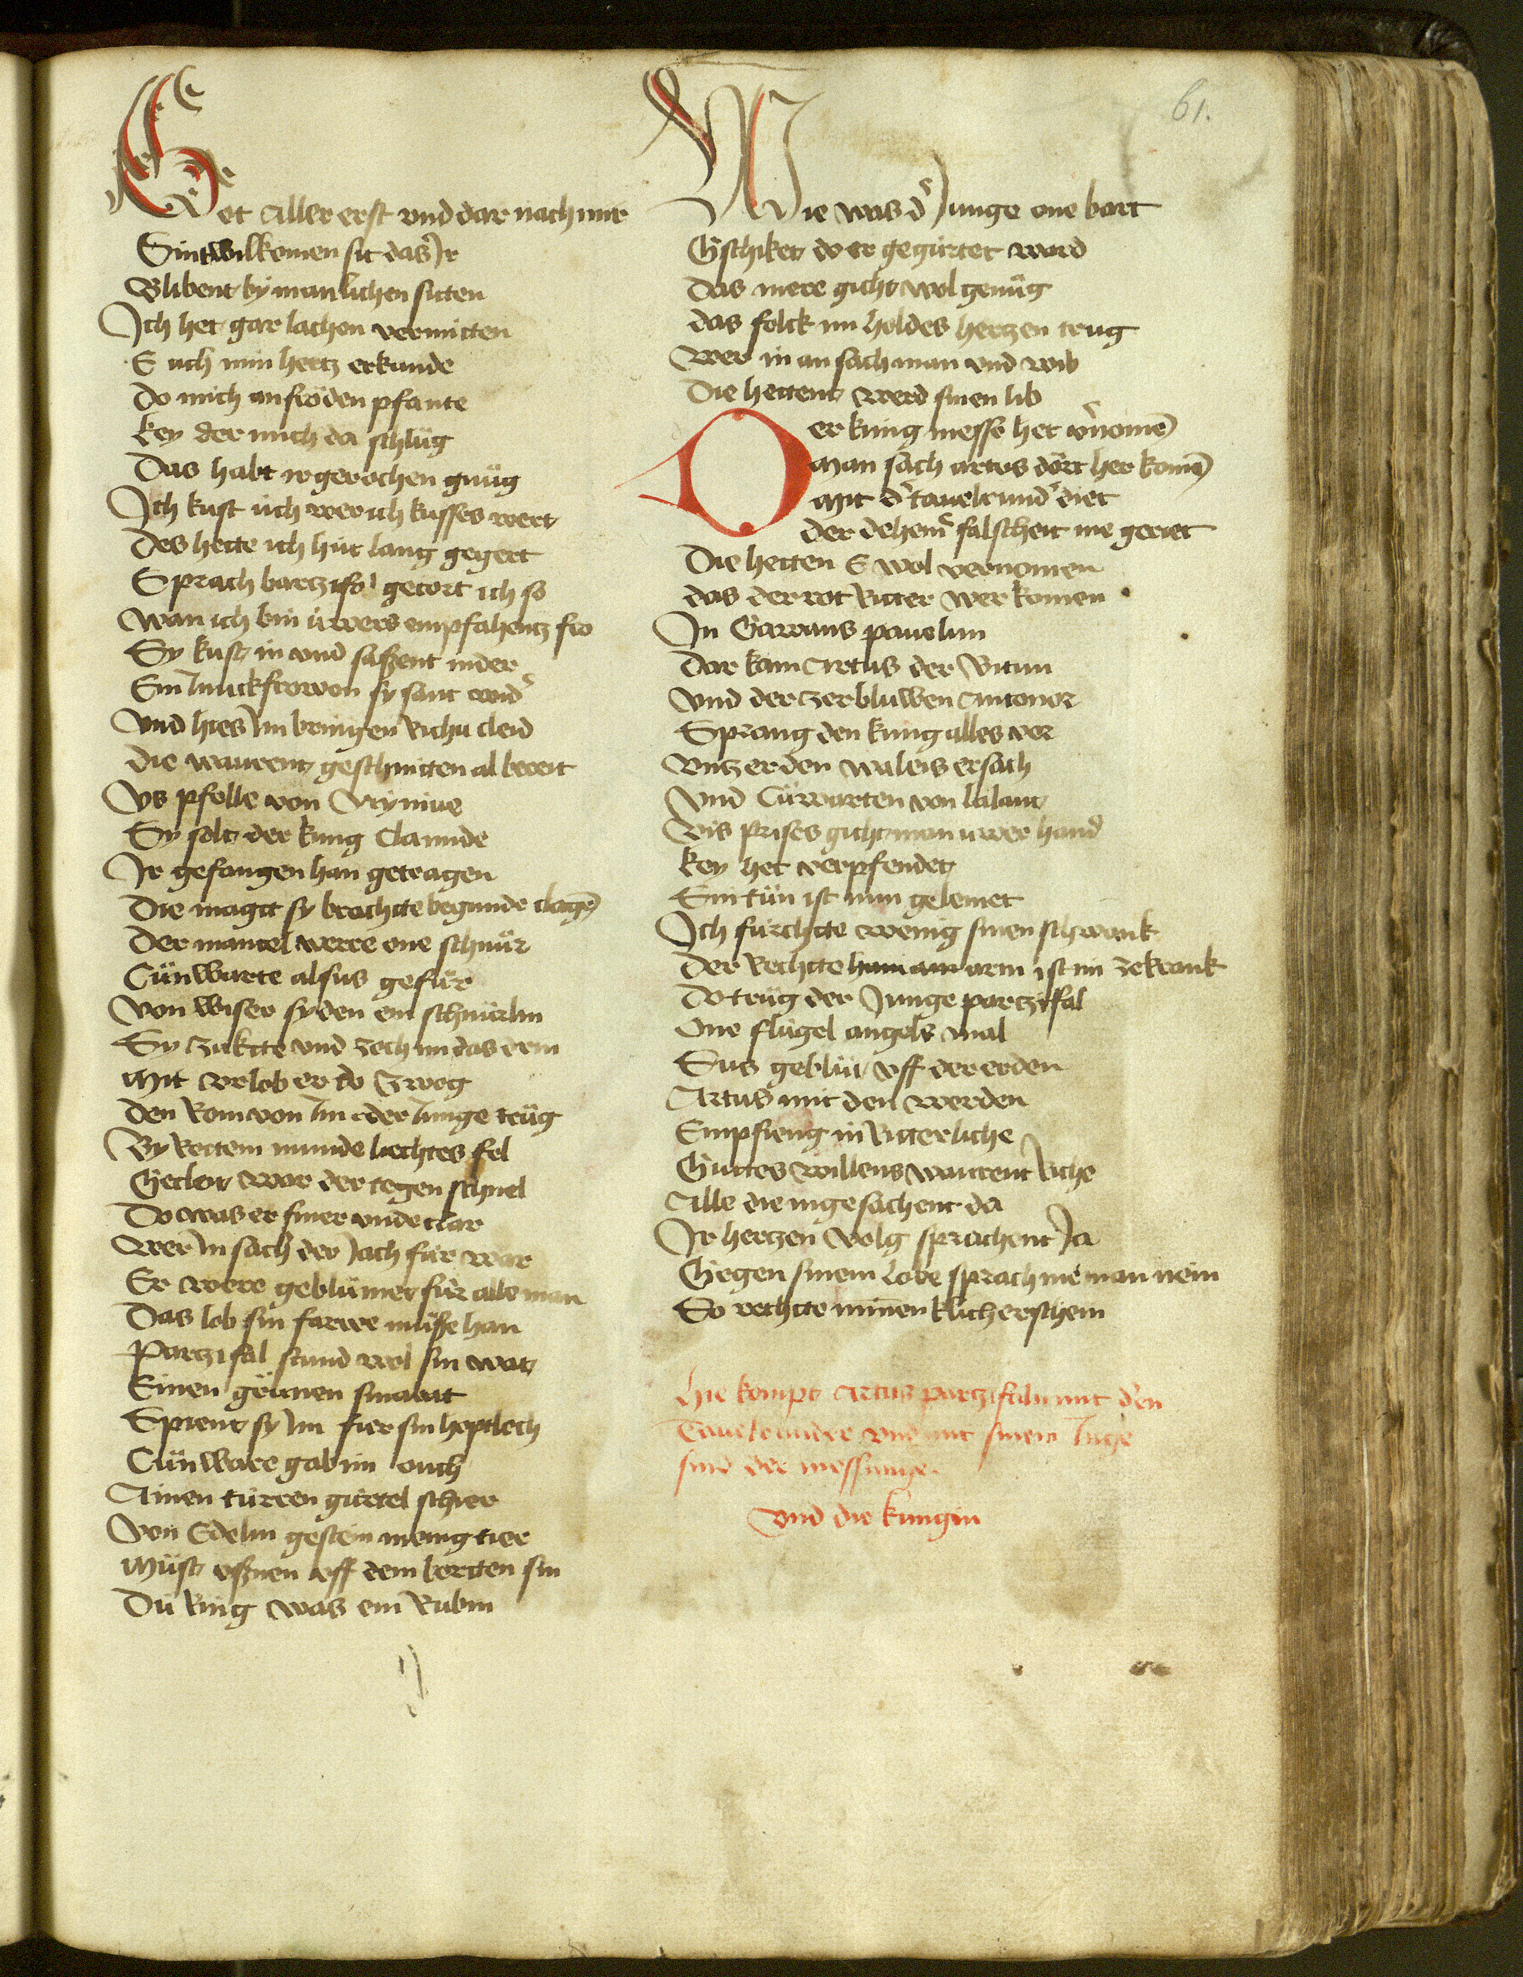 61.
Got aller erst vnd dar nach mir
Sint wilkomen sit das Jr
Blibent by manlichen sitten
Jch het gar lachen vermitten
E uch min hertz erkande
Do mich an fröden pfante
Key der mich da schlůg
Das habt ir gerochen gnůg
Jch kust üch wer ich kusses wert
Des hette ich hüt lang gegert
Sprach bartzifal getort ich so
Wan ich bin üwers empfahentz fro
Sy kust in vnd saßent nider
Ein Junckfrowen sy sant wid'
Vnd hies Jm bringen Richu cleid
Die warent geschnitten al bereit
Vs pfelle von Nynive
Sy solt der kung Clamide
Jr gefangen han getragen
Die magt sy brachtte begunde clagē
Der mantel were one schnůr
Cünware alsus gefůr
Von wiser syden ein schnürlin
Sy zuktte vnd zoch im das drin
Mit vrlob er do zwog
Den Rom von Jm der Junge trůg
By Rottem munde liechtes fel
Gecleit war der tegen schnel
Do was er finer vnde clar
Wer Jn sach der Jach für war
Er were geblümet für alle man
Das lob sin farwe můße han
Partzifal stund wol sin wat
Einen grünen smarat
Spient sy Jm fier sin hoptloch
Cünware gab im ouch
Ainen türren gürtel schier
Von Edelm gestein menig tier
Můst vßnen vff dem bortten sin
Dü Ring was ein Rubin
Wie was d' Junge one bart
Gschiket do er gegürtet ward
Das mere gicht wol genůg
das folck im holdes hertzen trug
Wer in an sach man vnd wib
Die hettent werd sinen lib
Der küng messe het v'nomē
Man sach artus dört her komē
Mit d' tauelrund' diet
der dehein' falscheit nie geriet
Die hetten E wol vernomen
das der rot Ritter wer komen
Jn Gawans pauelun
Dar kam Artus der Britun
Vnd der zerbluwen Antonor
Sprang den kung alles vor
Vntz er den waleis ersach
Vnd Cünwarten von lalant
Vis prises gicht man üwer hand
Key het verpfendet
Sin tün ist nun gelemet
Jch fürchtte wenig sinen schwank
Der Rechtte arm ist im zekrank
Do trůg der Junge partzifal
One flügel angels mal
Sus geblüt vff der erden
Artus mit den werden
Empfieng in Ritterliche
Guttes willens warent Riche
Alle die in gesachent da
Jr hertzen volg sprachent Ja
Gegen sinem lobe sprach nieman nein
So rechtte minenklich er schein
Hie kompt Artus partzifaln mit den
Tauelrunder vnd mit sinem
sind der messnunge.
vnd die kungin